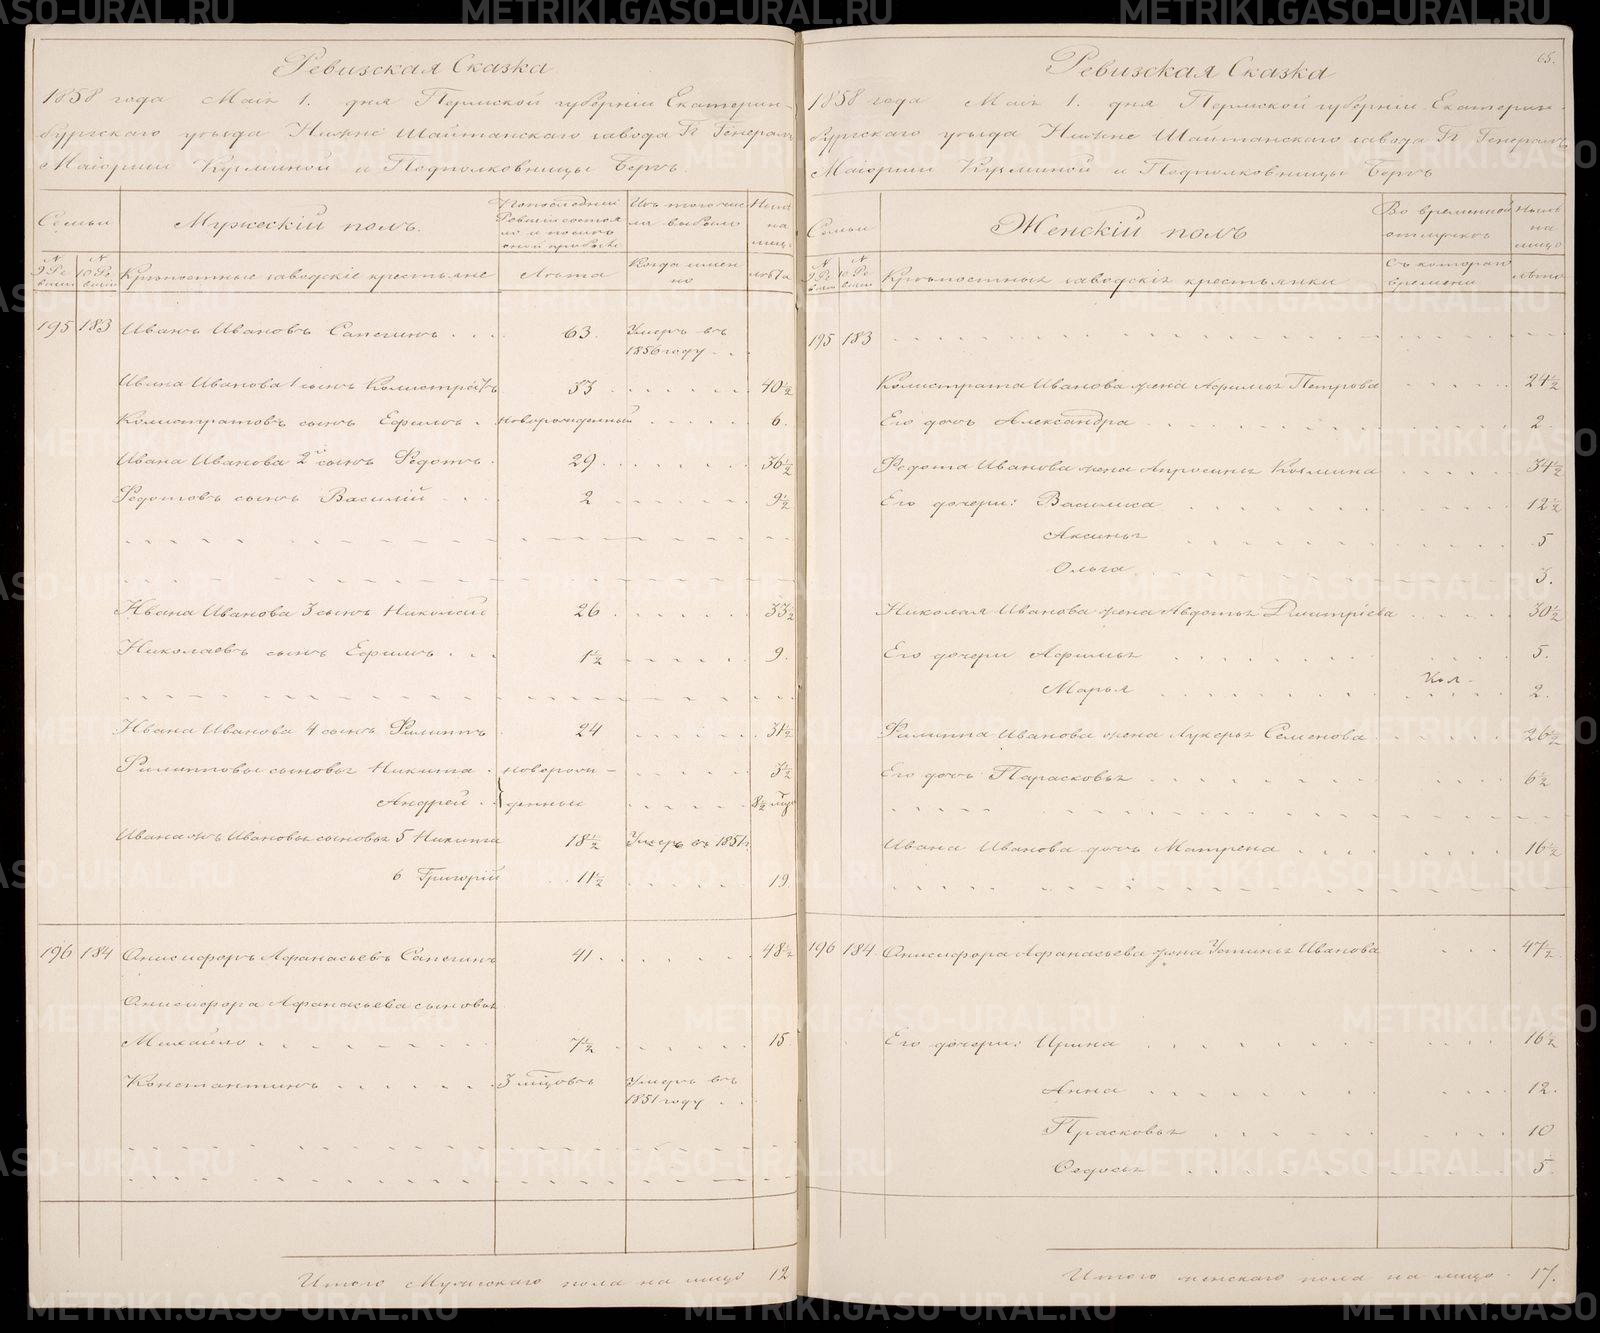 Ревизская Сказка
1858 года Маія 1. дня Пермской губерніи Екатерин-
бургскаго уѣзда Нижне Шайтанскаго завода Гг Генералъ
Маіорши Кузминой и Подполковницы Бергъ.
Семьи
Мужескій полъ.
По последней Ревизіи состояло и после оной прибыло
Изъ того числа выбыло
Нынѣ на лицо
№ 9 Ревизіи
№ 10 Ревизіи
Крѣпостные заводскіе крестьяне
Лѣта
Когда именно
лѣта
195 183 Иванъ Ивановъ Сапегинъ . . . 63. Умеръ въ
1856 году . .
Ивана Иванова 1 сынъ Колистратъ 33 40½
Колистратовъ сынъ Ефимъ . новорожденный 6.
Ивана Иванова 2й сынъ Федотъ . 29 36½
Федотовъ сынъ Василій 2 9½
Ивана Иванова 3 сынъ Николай 26 33½
Николаевъ сынъ Ефимъ . . . 1½ 9.
Ивана Иванова 4 сынъ Филиппъ 24 31½
Филипповы сыновья Никита . новорож- 3½
Андрей . . денные 8½ мцо
Иванажъ Иванова сыновья 5 Никита 18½ Умеръ въ 1851 г.
6 Григорій 11½ 19.
196 184 Анисифоръ Афанасьевъ Сапегинъ 41. 48½
Анисифора Афанасьева сыновья
Михайло 7½ 15
Константинъ 3 мѣсцовъ Умеръ въ
1851 году . .
Итого Мужескаго пола на лицо 12
65.
Ревизская Сказка
1858 года Маія 1. дня Пермской губерніи Екатерин-
бургскаго уѣзда Нижне Шайтанскаго завода Гг Генералъ
Маіорши Кузминой и Подполковницы Бергъ
Семьи
Женскій полъ
Во временной отлучкѣ
Нынѣ на лицо
№ 9 Ревизіи
№ 10 Ревизіи
Крѣпостныя заводскія крестьянки
Съ котораго времени
лѣта
195 183
Колистрата Иванова жена Афимья Петрова 24½
Его дочь Александра 2
Федота Иванова жена Апросинья Козмина 34½
Его дочери: Василиса 12½
Аксинья 5
Ольга 3.
Николая Иванова жена Авдотья Дмитріева 30½
Его дочери Афимья 5.
Марья 2.
Филиппа Иванова жена Лукерья Семенова 26½
Его дочь Парасковья 6½
Ивана Иванова дочь Матрена 16½
196 184 Анисифора Афанасьева жена Устинья Иванова 47½
Его дочери: Ирина 16½
Анна 12.
Прасковья 10
Федосья 5
Итого женскаго пола на лицо 17.
METRIKI.GASO-URAL.RU